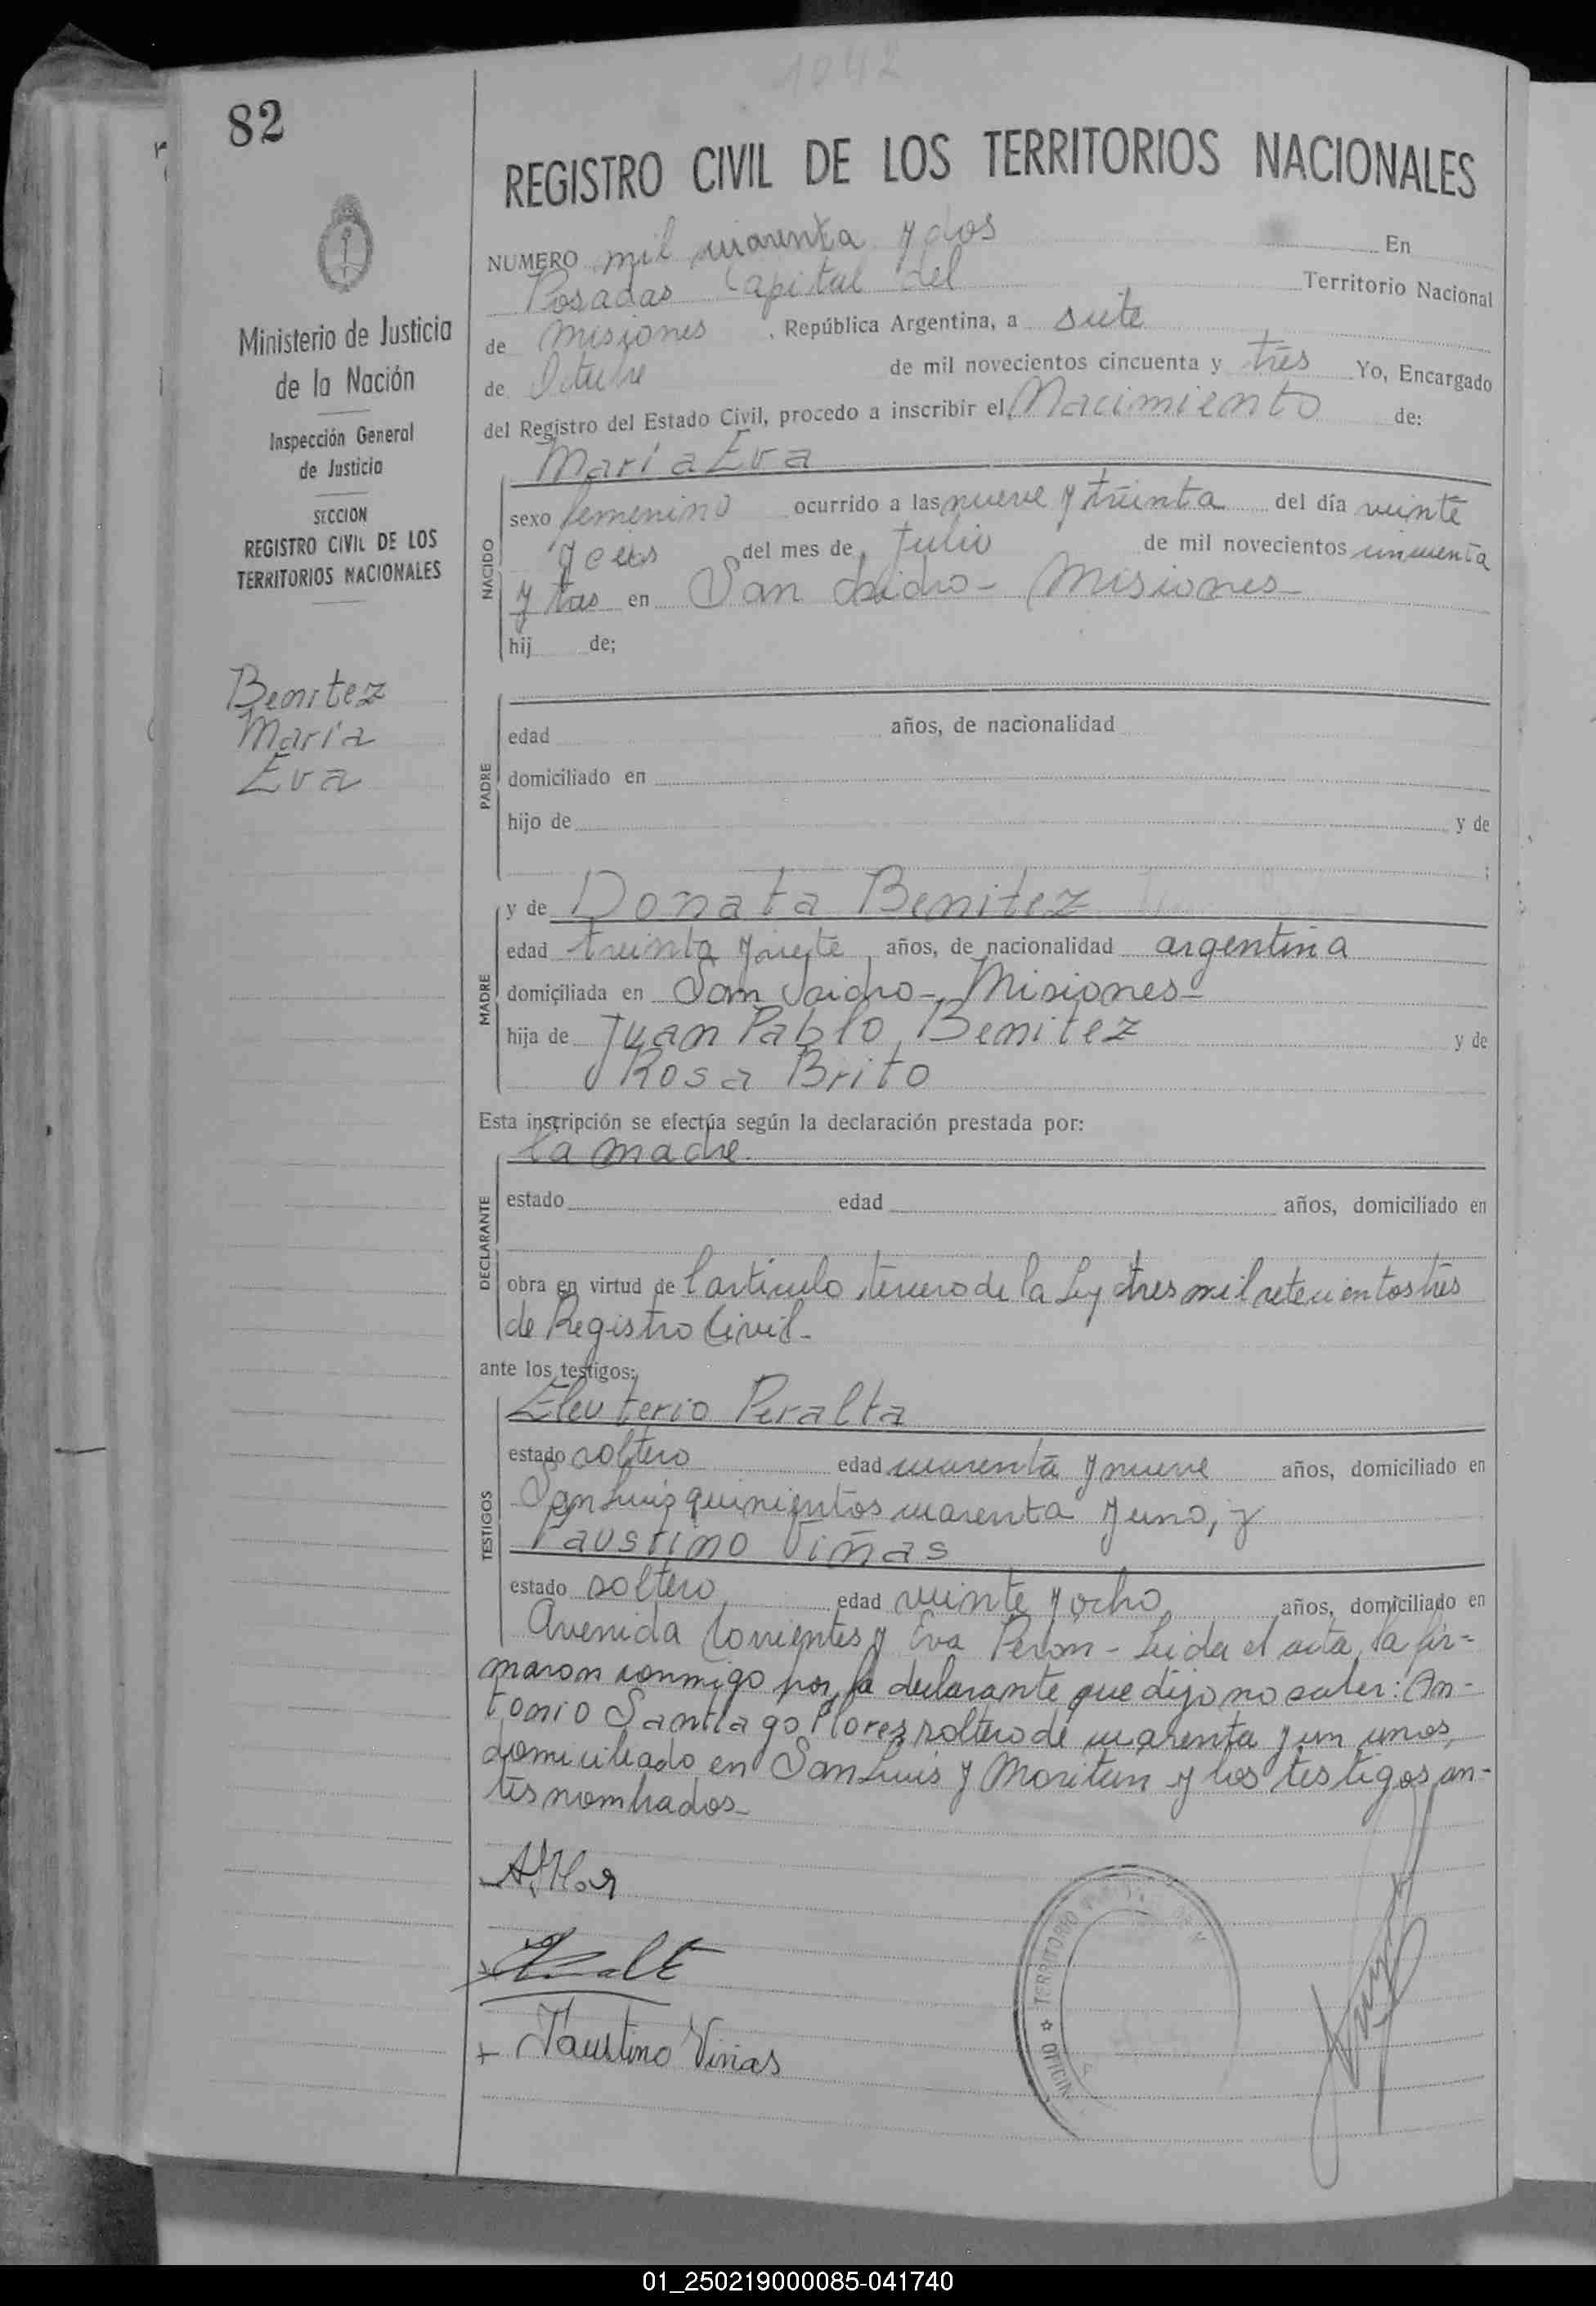 1042
82
REGISTRO CIVIL DE LOS TERRITORIOS NACIONALES
NUMERO mil cuarenta y dos En
Posadas Capital del Territorio Nacional
de Misiones , República Argentina, a siete
de Octubre de mil novecientos cincuenta y tres Yo, Encargado
del Registro del Estado Civil, procedo a inscribir el Nacimiento de:
Ministerio de Justicia
de la Nación
Inspección General
de Justicia
SECCION
REGISTRO CIVIL DE LOS
TERRITORIOS NACIONALES
Benitez
Maria
Eva
NACIDO
Maria Eva
sexo femenino ocurrido a las nueve y treinta del día veinte
y seis del mes de Julio de mil novecientos cincuenta
y tres en San Isidro - Misiones -
hij de;
PADRE
edad años, de nacionalidad
domiciliado en
hijo de y de
;
MADRE
y de Donata Benitez
edad treinta y siete años, de nacionalidad argentina
domiciliada en San Isidro - Misiones -
hija de Juan Pablo Benitez y de
Rosa Brito
Esta inscripción se efectúa según la declaración prestada por:
DECLARANTE
la madre.
estado edad años, domiciliado en
obra en virtud de l artículo tercero de la Ley tres mil setecientos tres
de Registro Civil -
ante los testigos:
TESTIGOS
Eleuterio Peralta
estado soltero edad cuarenta y nueve años, domiciliado en
San Luis quinientos cuarenta y uno, y
Faustino Viñas
estado soltero edad veinte y ocho años, domiciliado en
Avenida Corrientes y Eva Peron - Leida el acta, la fir=
maron conmigo por la declarante que dijo no saber: An-
tonio Santiago Flores soltero de cuarenta y un años,
domiciliado en San Luis y Moritan y los testigos an-
tes nombrados -
Faustino Viñas
TERRITORIO
OFICIN
01_250219000085-041740